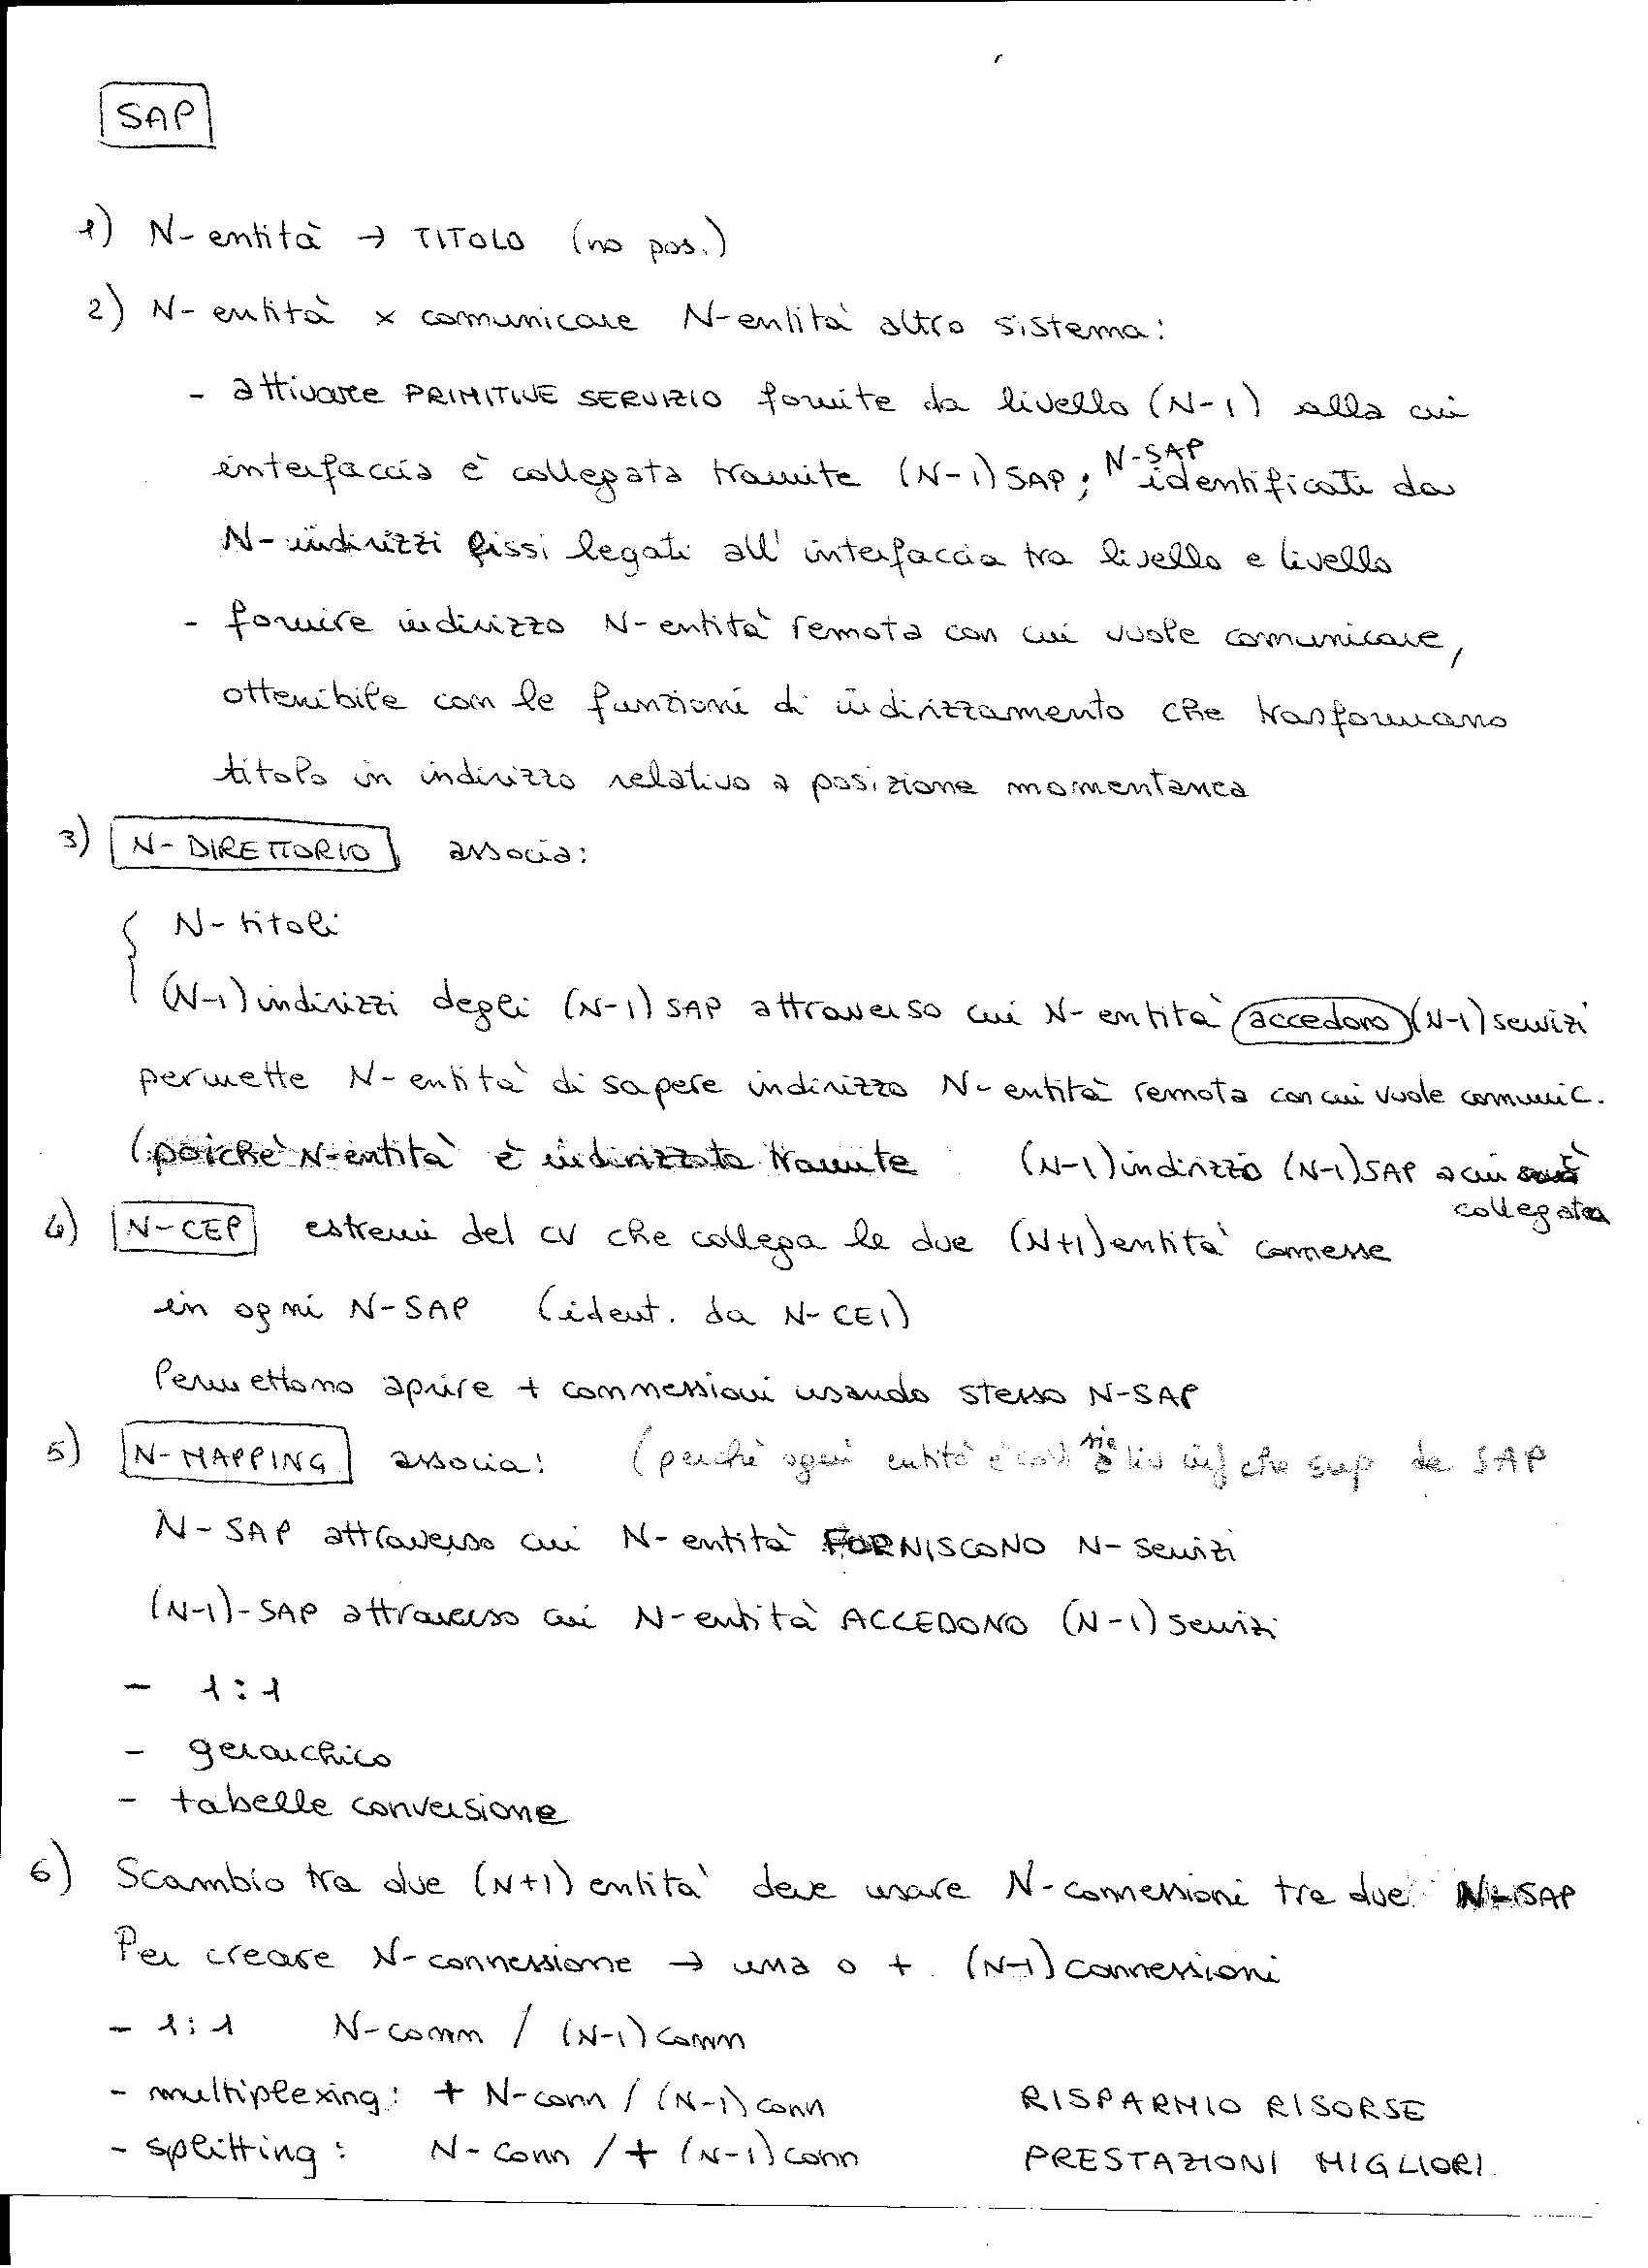 SAP
1) N-entità → TITOLO (no pos.)
2) N-entità x comunicare N-entità altro sistema:
- attivare PRIMITIVE SERVIZIO fornite da livello (N-1) alla cui
interfaccia è collegata tramite (N-1)SAP; N-SAP identificati da
N-indirizzi fissi legati all'interfaccia tra livello e livello
- fornire indirizzo N-entità remota con cui vuole comunicare,
ottenibile con le funzioni di indirizzamento che trasformano
titolo in indirizzo relativo a posizione momentanea
3) N-DIRETTORIO associa:
N-titoli
(N-1)indirizzi degli (N-1)SAP attraverso cui N-entità accedono (N-1)servizi
permette N-entità di sapere indirizzo N-entità remota con cui vuole comunic.
(poichè N-entità è indirizzata tramite (N-1)indirizzo (N-1)SAP a cui è
collegata
4) N-CEP estremi del CV che collega le due (N+1)entità connesse
in ogni N-SAP (ident. da N-CEI)
Permettono aprire + connessioni usando stesso N-SAP
5) N-MAPPING associa: (perchè ogni entità è coll sia a liv inf che sup da SAP
N-SAP attraverso cui N-entità FORNISCONO N-servizi
(N-1)-SAP attraverso cui N-entità ACCEDONO (N-1)servizi
- 1:1
- gerarchico
- tabelle conversione
6) Scambio tra due (N+1)entità deve usare N-connessioni tra due N-SAP
Per creare N-connessione → una o + (N-1)connessioni
- 1:1 N-conn / (N-1)conn
- multiplexing: + N-conn / (N-1)conn RISPARMIO RISORSE
- splitting: N-conn / + (N-1)conn PRESTAZIONI MIGLIORI.